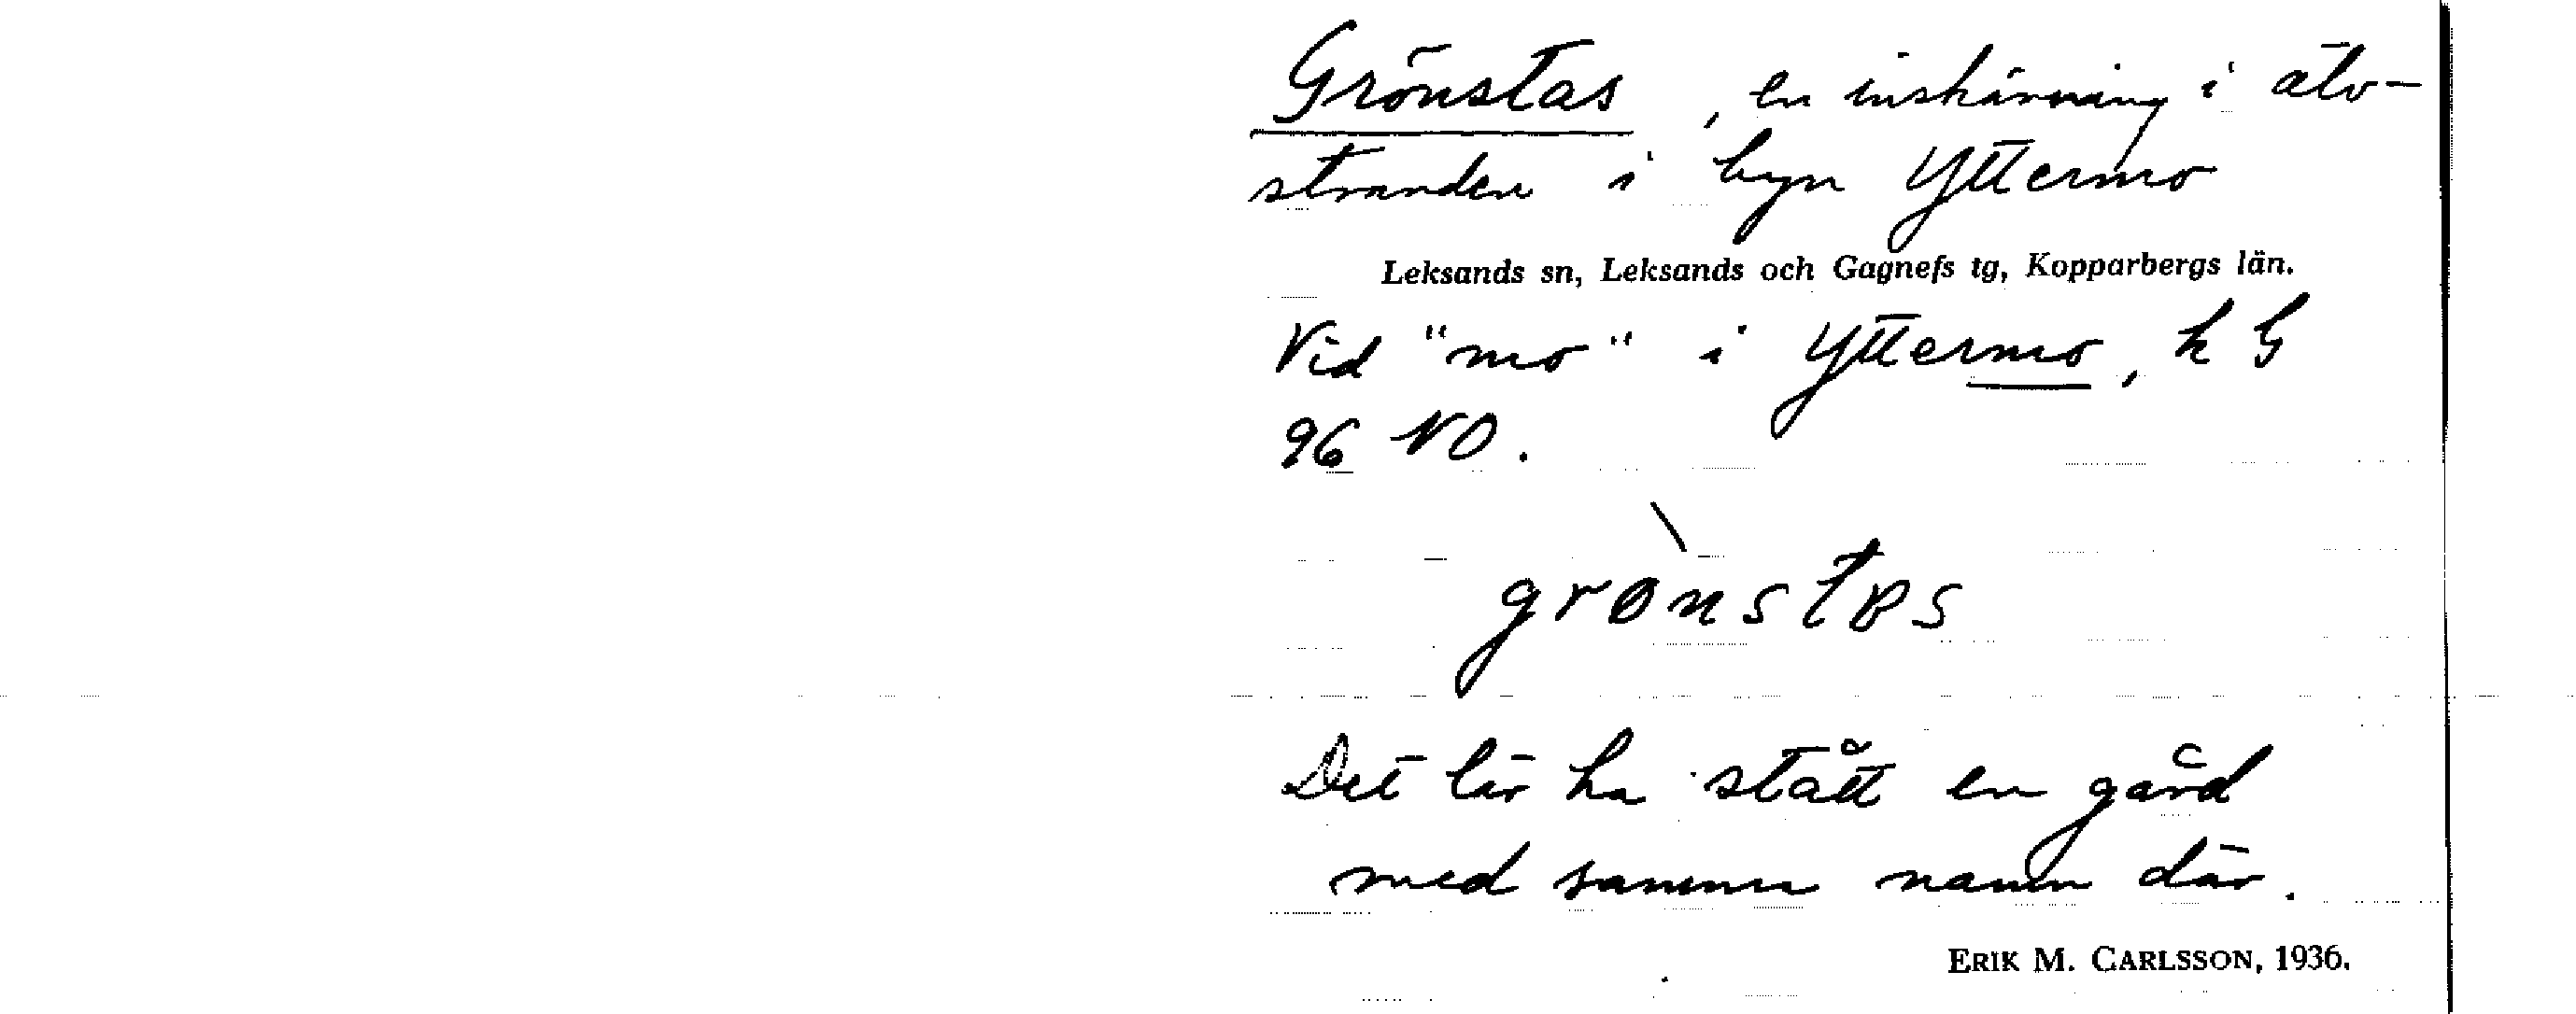 Grönstas, en inskärning i älv-
stranden i byn Yttermo
Leksands sn, Leksands och Gagnefs tg, Kopparbergs län.
Vid "mo" i Yttermo, k G
96 NO.
Det lär ha stått en gård
med samma namn där.
ERIK M. CARLSSON, 1936.